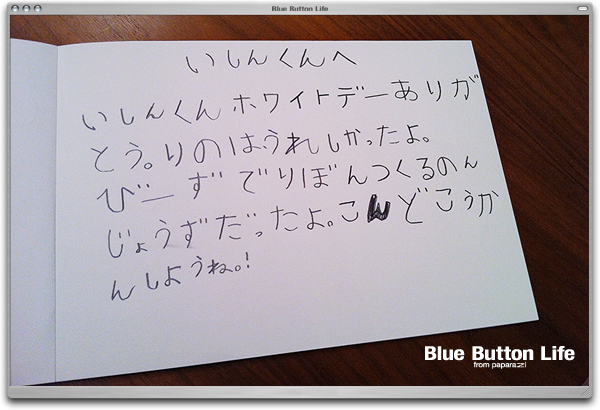 Blue Button Life
いしんくんへ
いしんくんホワイトデーありが
とう。りのはうれしかったよ。
びーずでりぼんつくるのん
じょうずだったよ。こんどこうか
んしようね。!
Blue Button Life
from paparazzi